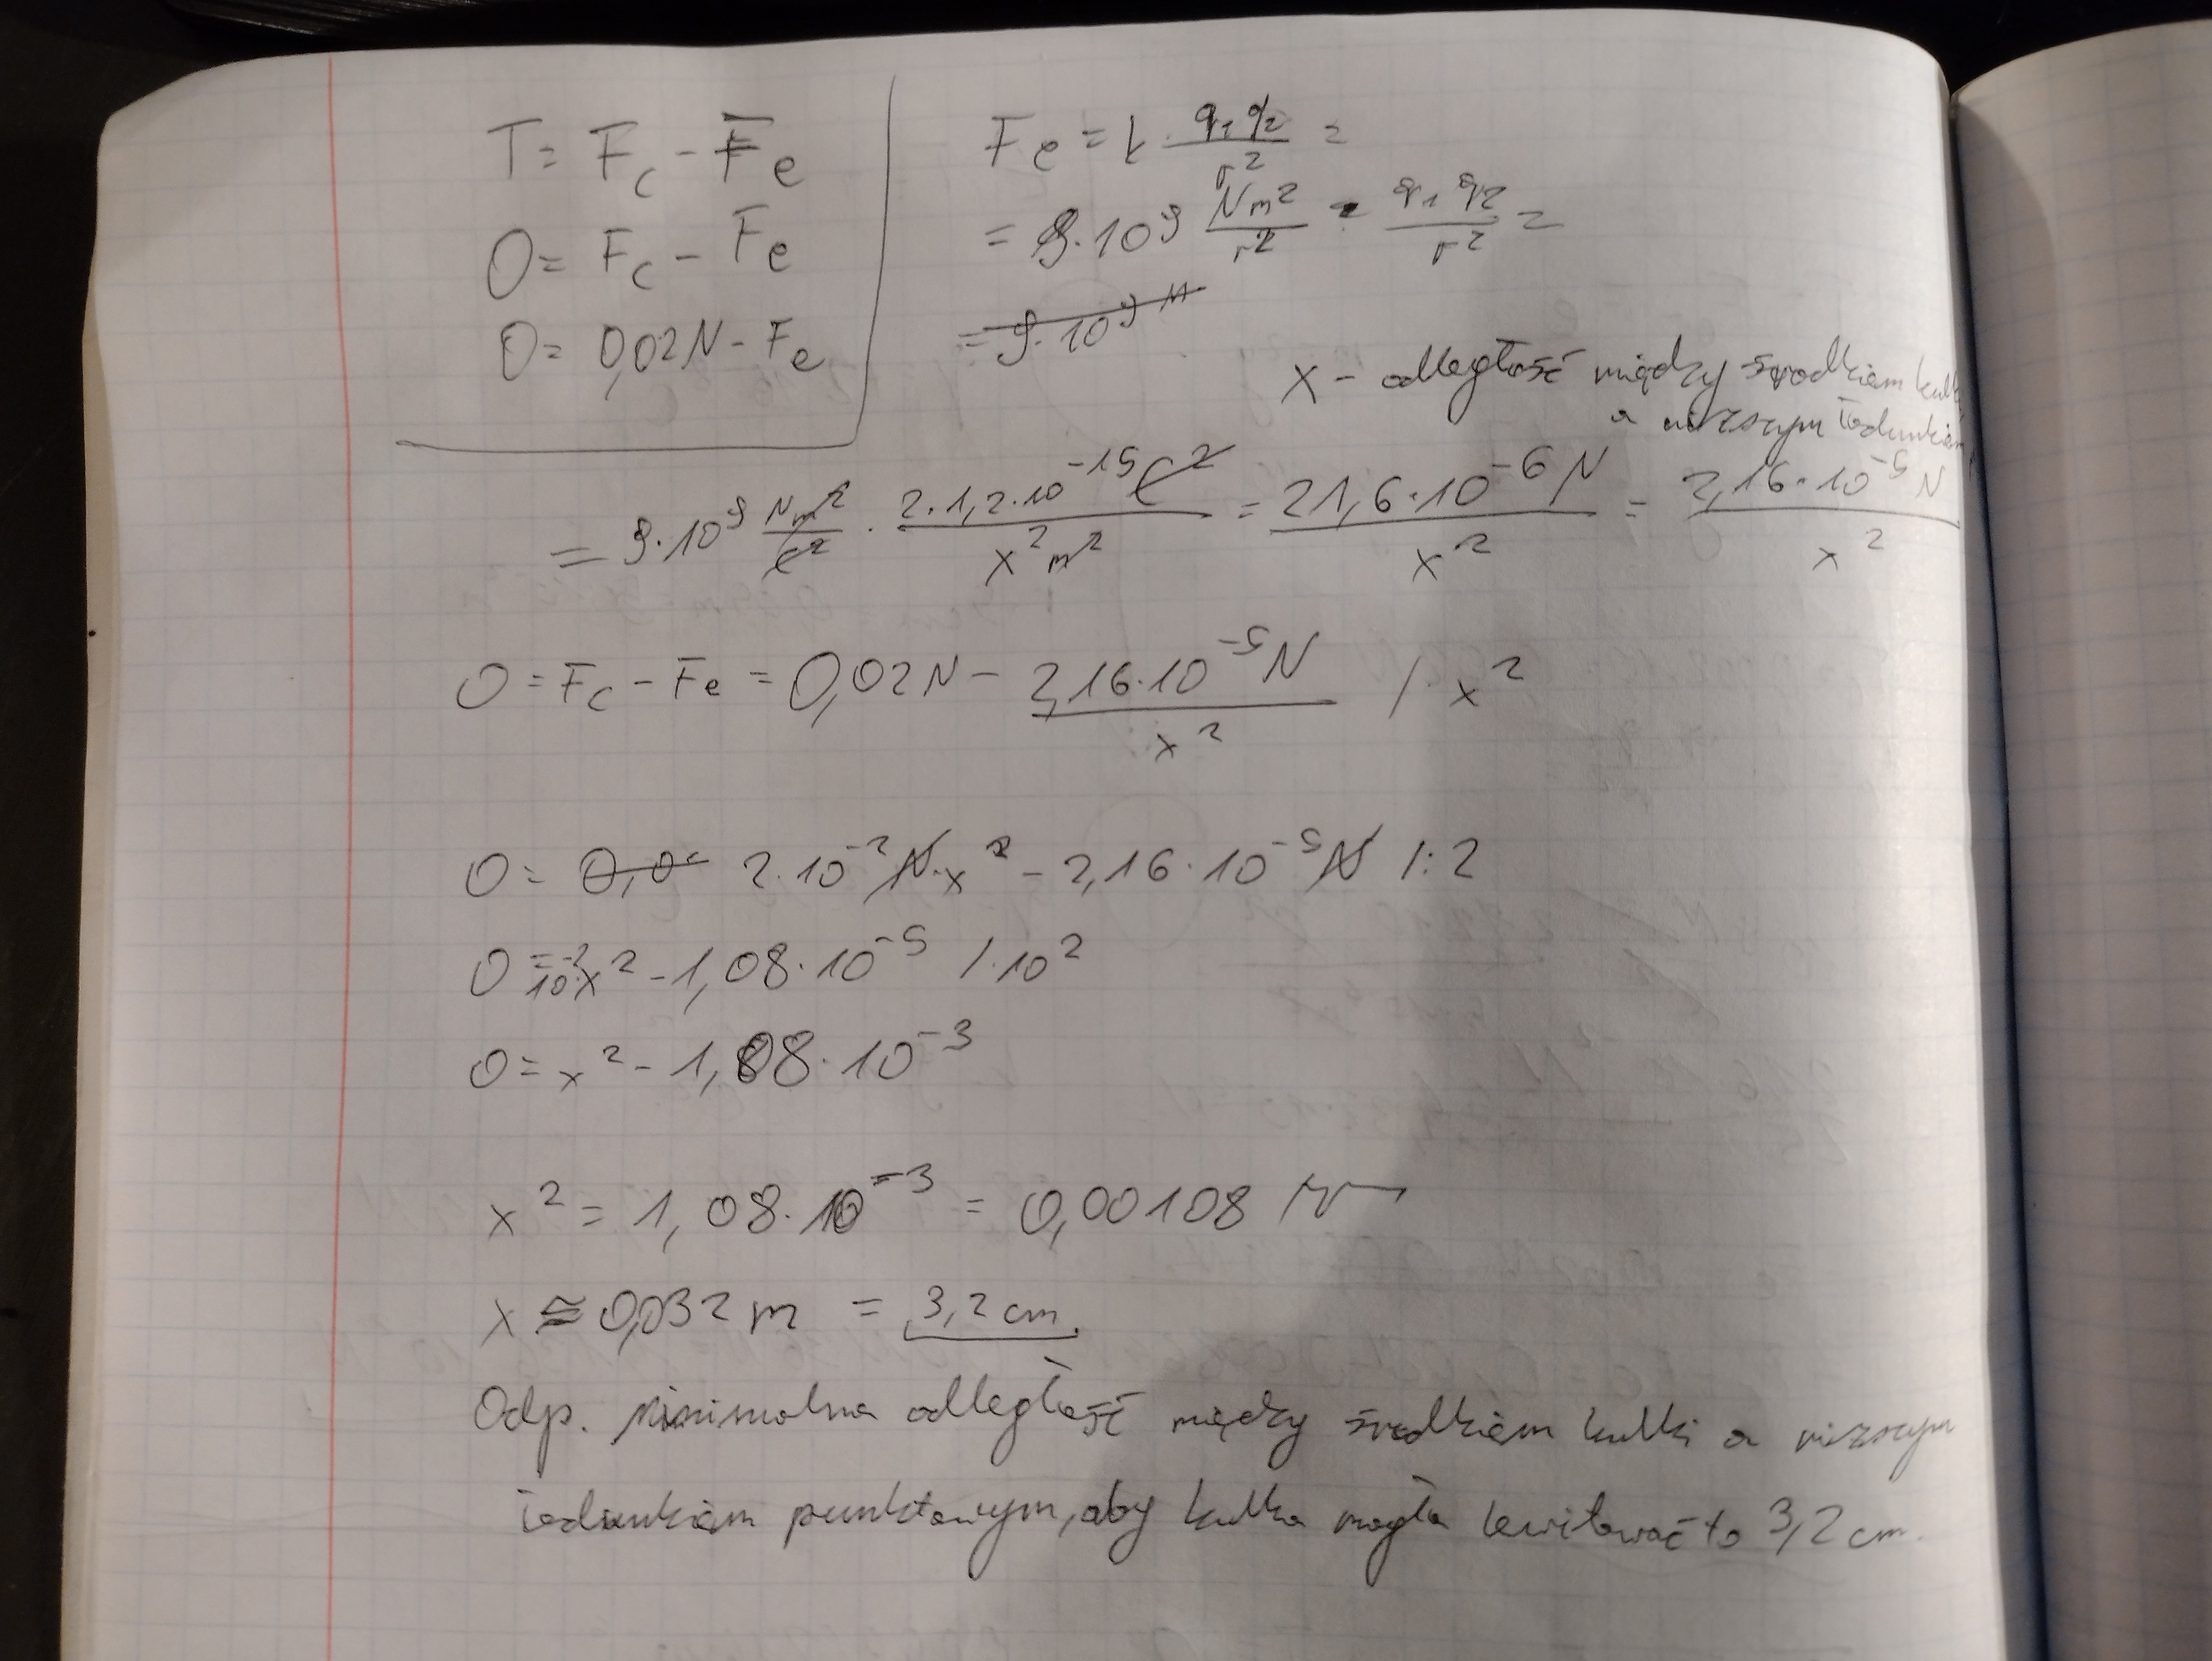 T = Fc - Fe
0 = Fc - Fe
0 = 0,02N - Fe
Fe = k · q₁q₂/r² =
= 9·10⁹ Nm²/r² · q₁q₂/r² =
= 9·10⁹ N
x - odległość między środkiem kulki
a niższym ładunkiem
= 9·10⁹ Nm²/C² · 2·1,2·10⁻¹⁵C²/x²m² = 21,6·10⁻⁶N/x² = 2,16·10⁻⁵N/x²
0 = Fc - Fe = 0,02N - 2,16·10⁻⁵N/x² /·x²
0 = 0,0 2·10⁻²N·x² - 2,16·10⁻⁵N /:2
0 = 10⁻²·x² - 1,08·10⁻⁵ /·10²
0 = x² - 1,08·10⁻³
x² = 1,08·10⁻³ = 0,00108
x ≅ 0,032 m = 3,2 cm.
Odp. Minimalna odległość między środkiem kulki a niższym
ładunkiem punktowym, aby kulka mogła lewitować to 3,2 cm.